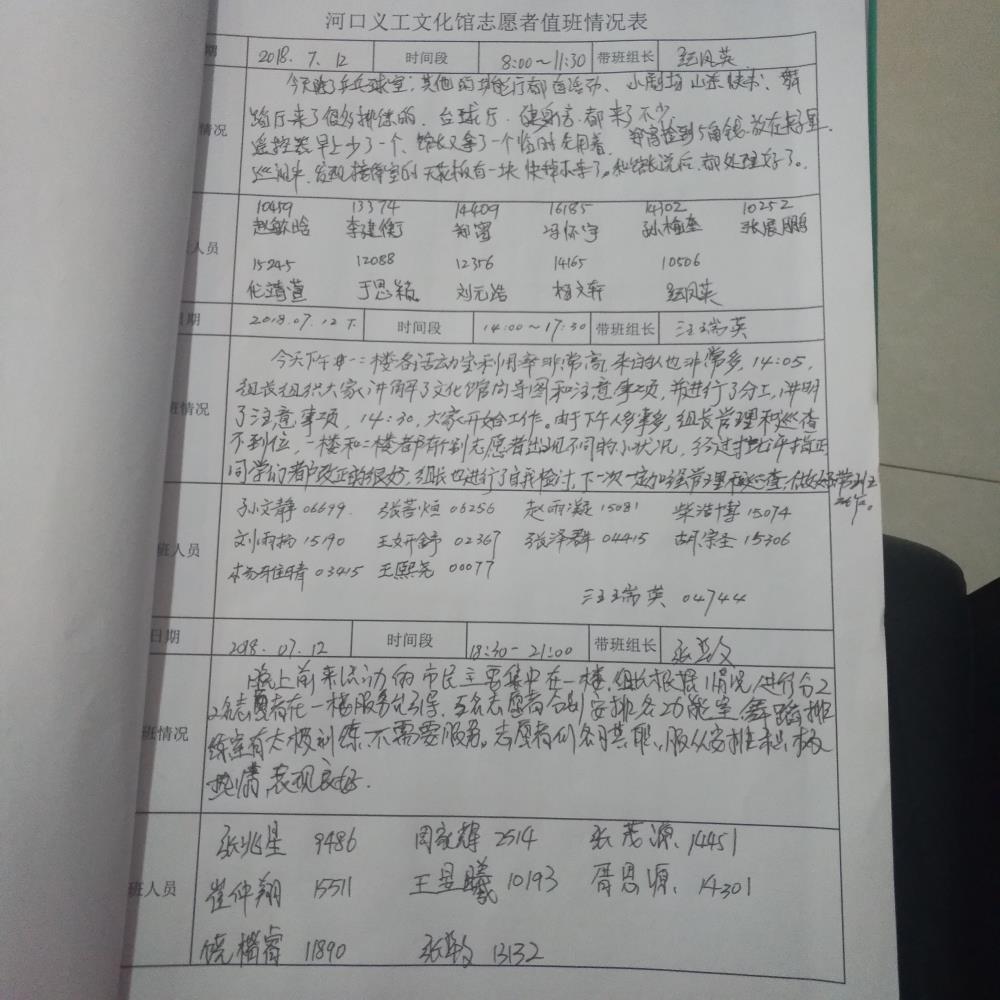 河口义工文化馆志愿者值班情况表
期 2018.7.12 时间段 8:00~11:30 带班组长 凤英
今天除了乒乓球室,其他的功能厅都有活动、小剧场山东快书、舞
蹈厅来了很多排练的、台球厅、健身房都来了不少
情况 遥控器早上少了一个、馆长又拿了一个临时先用着、捡到5角钱放在
巡视中,发现接待室的天花板有一块快掉下来了。和馆长说后,都处理好了。
10459 13374 14409 16185 14302 10252
赵敏晗 李建衡 郑 冯怀宇 孙梅奎 张展鹏
人员
15245 12088 12356 14165 10506
伦靖萱 于思颖 刘元浩 杨文轩 凤英
日期 2018.07.12下 时间段 14:00~17:30 带班组长 汪瑞英
今天下午一二楼各活动室利用率非常高,来的人也非常多,14:05,
组长组织大家讲解了文化馆向导图和注意事项,并进行了分工,讲明
班情况 了注意事项,14:30,大家开始工作。由于下午人多事多,组长管理和巡查
不到位,一楼和二楼都有个别志愿者出现不同的小状况,经过批评指正
同学们都改正的很好,组长也进行了自我检讨,下一次一定加强管理和巡查,做好带班工
作。
孙文静 06699 张菩烜 06256 赵雨凝 15081 柴浩博 15074
班人员 刘雨扬 15190 王妍舒 02367 张泽群 04415 胡宗圣 15306
杨雅晴 03415 王熙尧 00077
汪瑞英 04744
日期 2018.07.12 时间段 18:30-21:00 带班组长 张
晚上前来活动的市民主要集中在一楼,组长根据情况,进行分工
2名志愿者在一楼服务台引导,5名志愿者分别安排各功能室,舞蹈排
班情况 练室有太极训练,不需要服务。志愿者们各司其职,服从安排,积极
热情,表现良好.
张兆星 9486 周家辉 2514 张茂源 14451
班人员 崔仲翔 15511 王昱曦 10193 唐恩源 14301
饶楷睿 11890 张 13132